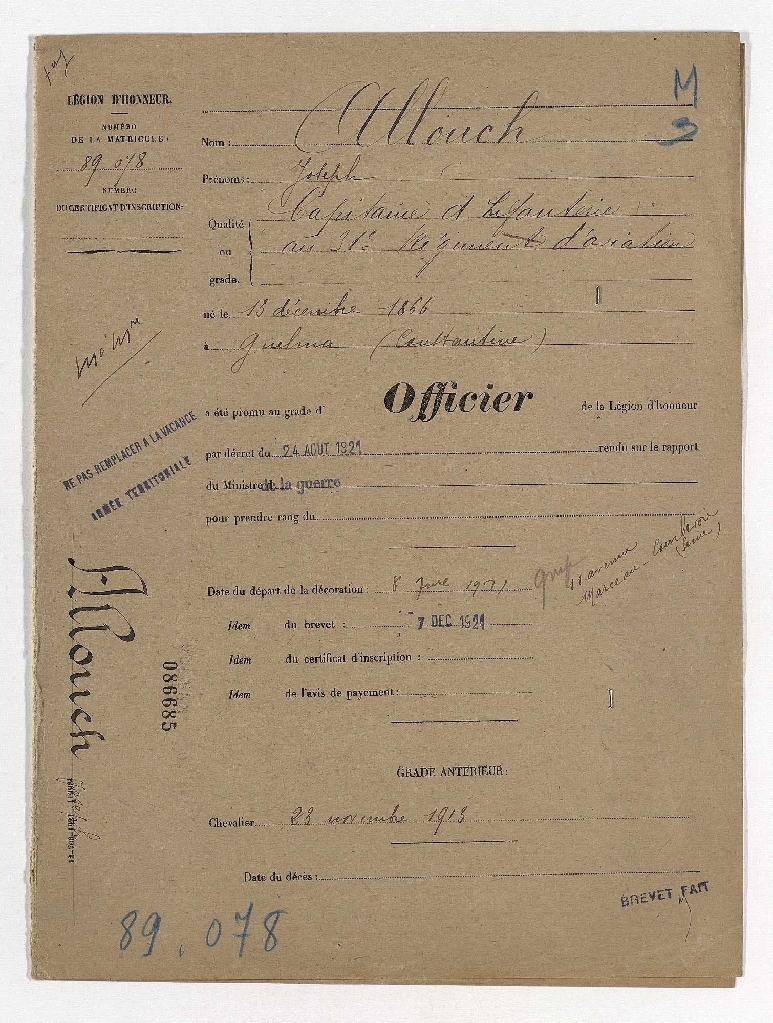 LÉGION D'HONNEUR.
NUMÉRO
DE LA MATRICULE:
89 078
NUMÉRO
DU CERTIFICAT D'INSCRIPTION:
M
Nom: Allouch
Prénoms: Joseph
Qualité ou grade. Capitaine d'Infanterie
au 31e Régiment d'aviation
né le 13 décembre 1866
à Guelma (Constantine)
NE PAS REMPLACER A LA VACANCE
ARMÉE TERRITORIALE
a été promu au grade d' Officier de la Légion d'honneur
par décret du 24 AOUT 1921 rendu sur le rapport
du Ministre d de la guerre
pour prendre rang du
avenue
Marceau - Courbevoie
(Seine)
Date du départ de la décoration : 8 1921
Idem du brevet : 7 DEC 1921
Idem du certificat d'inscription :
Idem de l'avis de payement :
Allouch
086685
GRADE ANTÉRIEUR:
Chevalier 23 novembre 1913
Date du décès :
BREVET FAIT
89.078